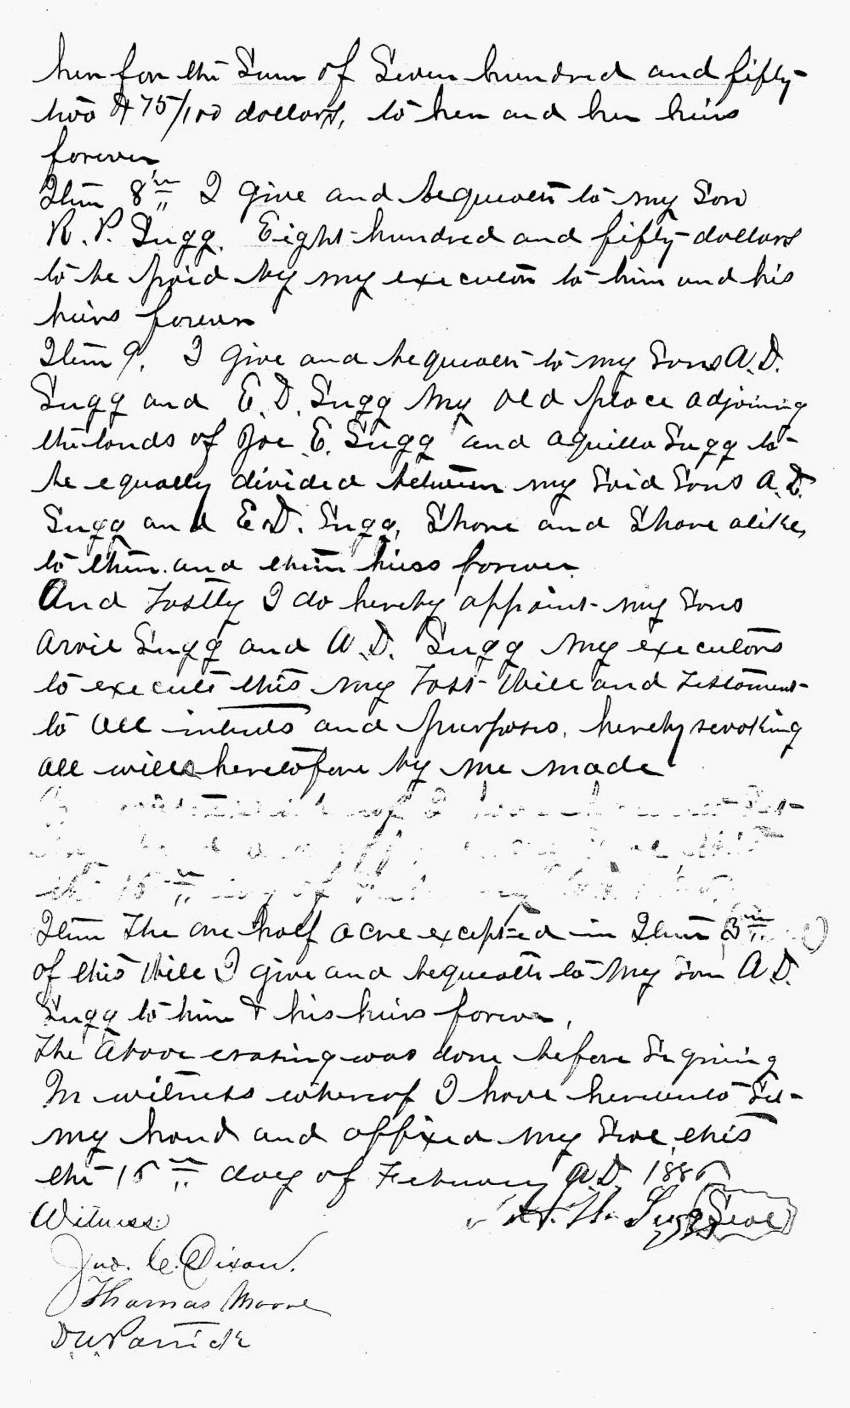 her for the Sum of Seven hundred and fifty-
two & 75/100 dollars, to her and her heirs
forever
Item 8th I give and bequeath to my Son
R. P. Sugg. Eight hundred and fifty dollars
to be paid by my executors to him and his
heirs forever
Item 9. I give and bequeath to my Sons A. D.
Sugg and E. D. Sugg my old place adjoining
the lands of Joe E. Sugg and Aquilla Sugg to
be equally divided between my Said Sons A. D.
Sugg and E. D. Sugg, Share and Share alike,
to them and their heirs forever
And Lastly I do hereby appoint my Sons
Arvil Sugg and A. D. Sugg my executors
to execute this my Last Will and Testament
to all intents and purposes, hereby revoking
all wills heretofore by me made
Item The one half acre excepted in Item 3rd
of this Will I give and bequeath to my Son A D.
Sugg to him & his heirs forever,
The Above erasing was done before Signing
In witness whereof I have hereunto Set
my hand and affixed my Seal, this
the 15th day of February A D 1886
Witness Sugg Seal
Jno. C. Dixon.
Thomas Moore
D W Patrick